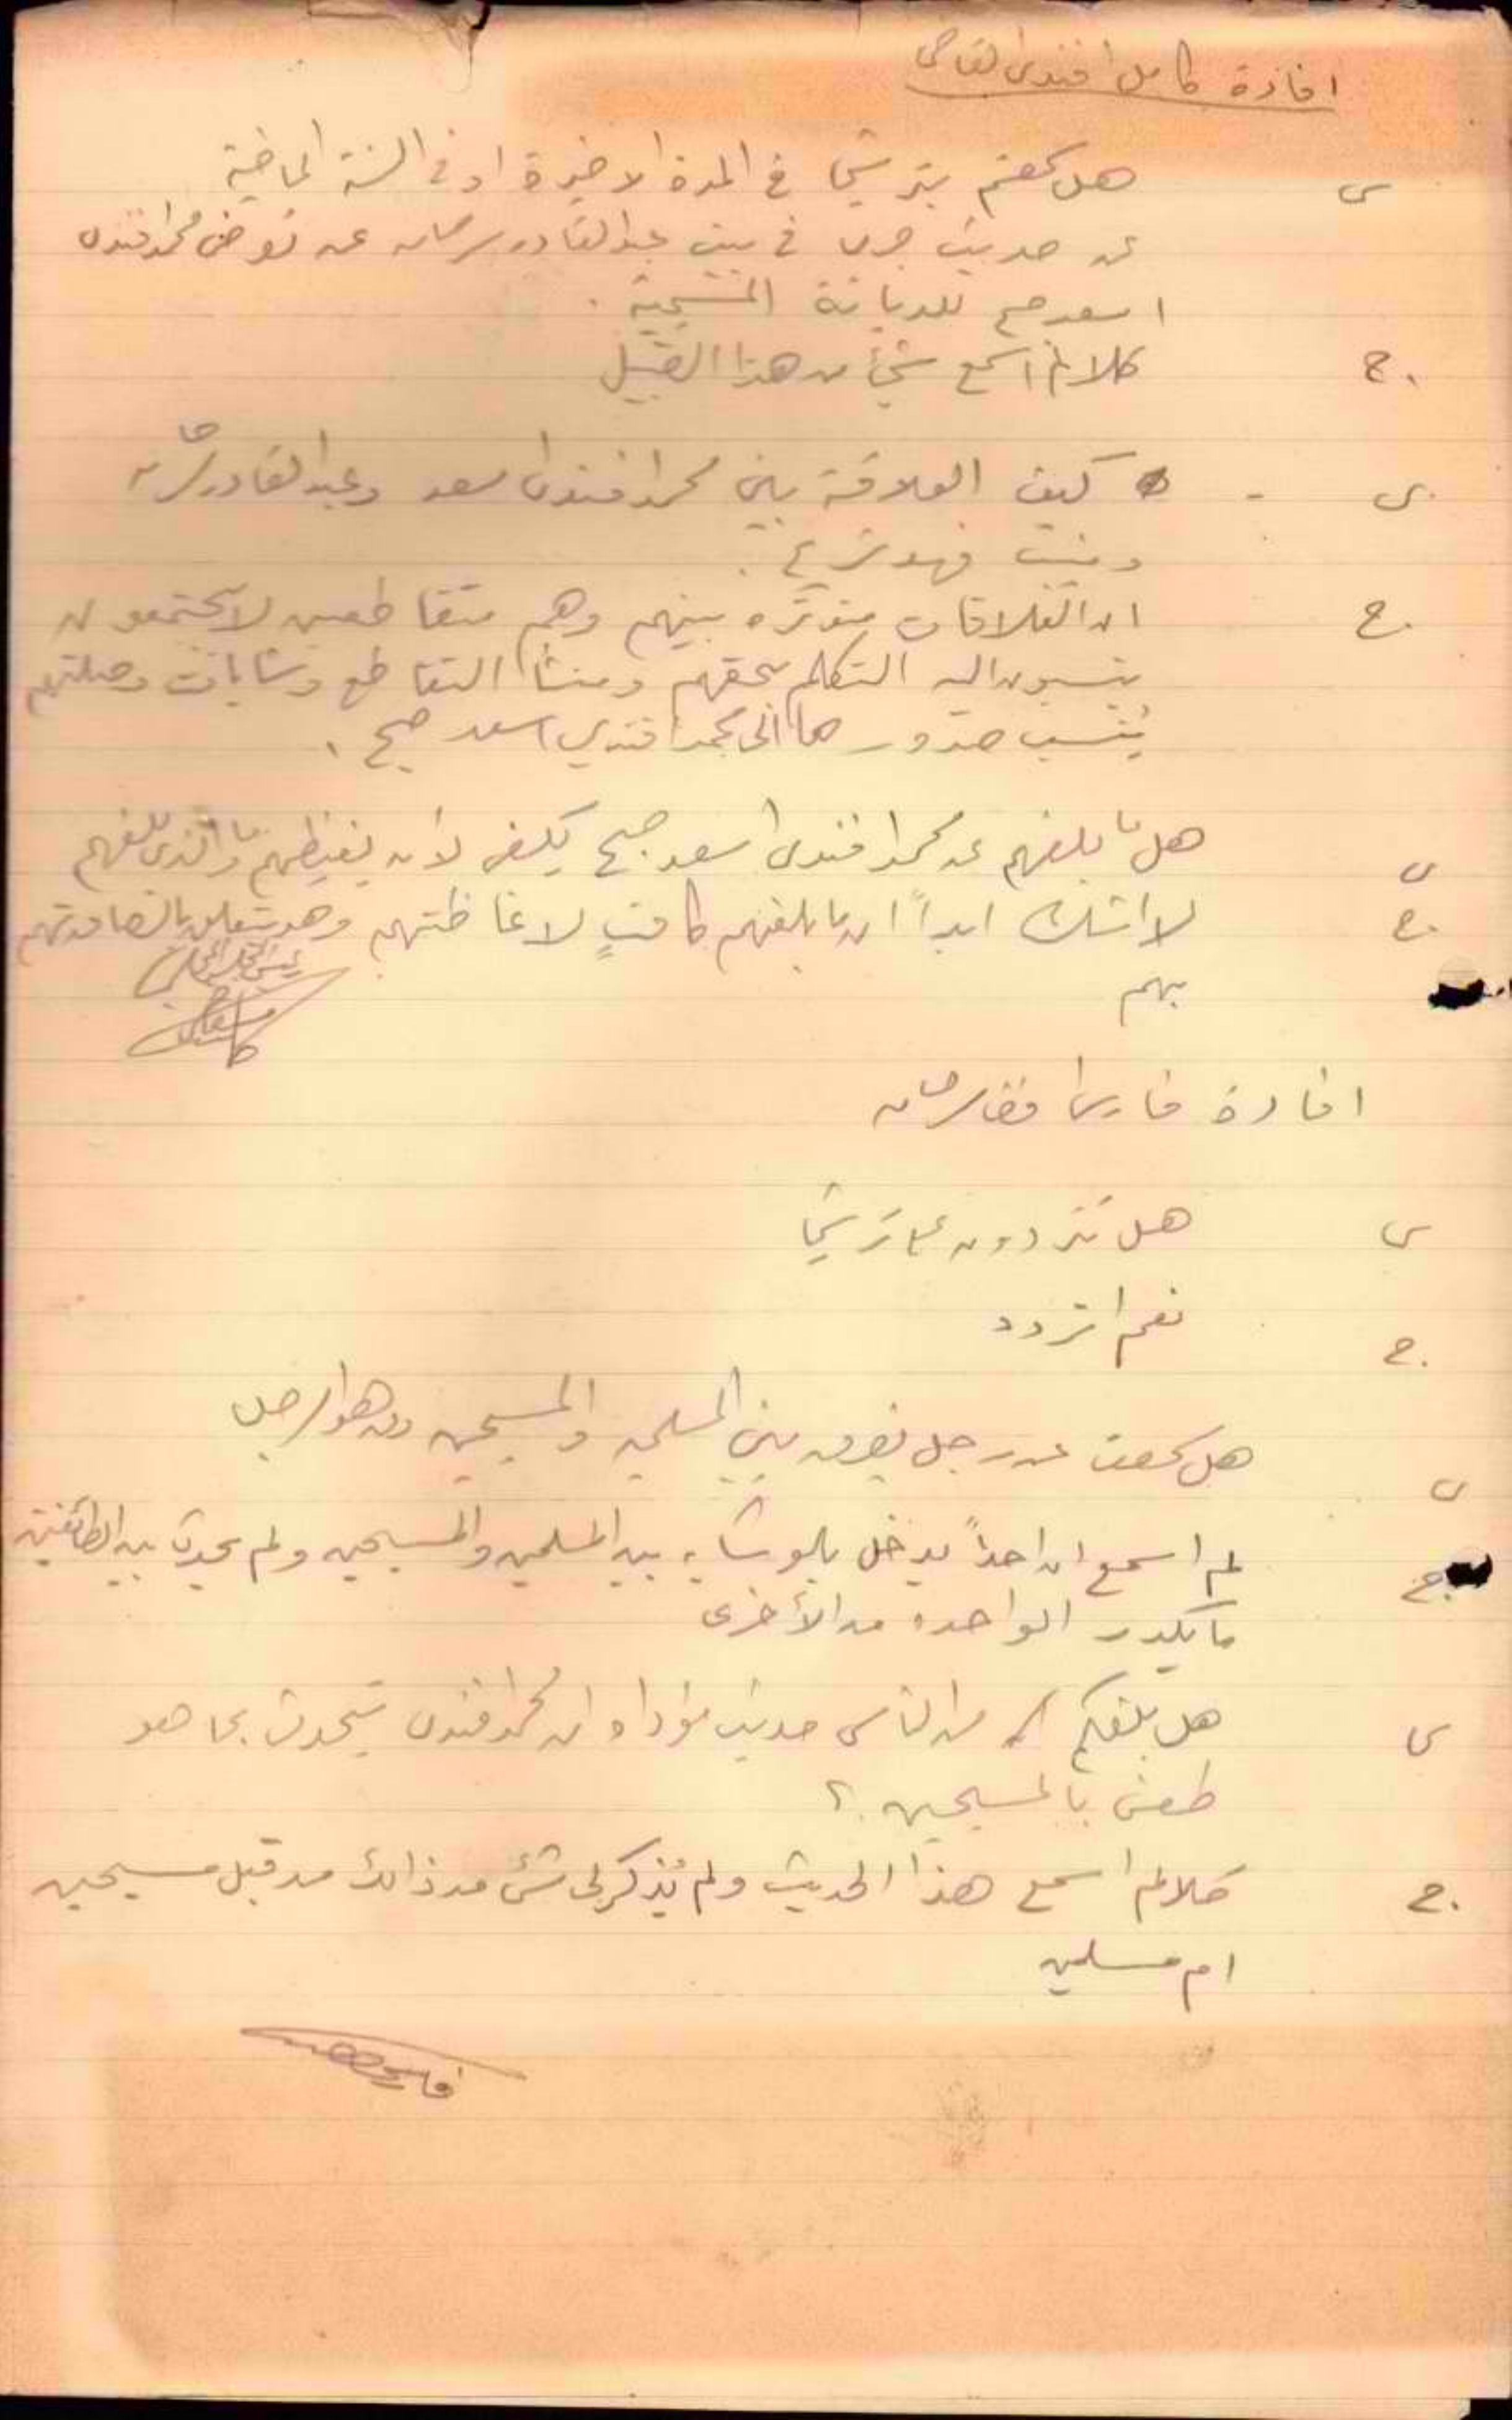 افادة كامل افندي القاضي
س هل سمعتم بترشيحا في المدة الاخيرة او في السنة الماضية
عن حديث جرى في بيت عبد القادر سرحان عن تعرض محمد افندي
اسعد صبح للديانة المسيحية .
ج. كلا لم اسمع شيئاً من هذا القبيل
س. - كيف العلاقة بين محمد افندي اسعد وعبد القادر سرحان
وبيت فهد شريح .
ج. ان العلاقات متوترة بينهم وهم متقاطعين لا يجتمعون
ينسبون اليه التكلم بحقهم ومنشأ التقاطع وشايات وصلتهم
يُنسب صدورها الى محمد افندي اسعد صبح .
س هل ما بلغهم عن محمد افندي اسعد صبح يكفي لان يغيظهم وما الذي بلغهم
ج. لا اشك ابداً ان ما بلغهم كافٍ لاغاظتهم وهو يتعلق
بهم
رئيس المجلس المحلي
افادة فارس سرحان
س هل تترددون على ترشيحا
ج. نعم اتردد
س هل سمعت عن رجل يفرق بين المسلمين والمسيحيين ومن هو الرجل
ج. لم اسمع ان احداً يدخل بالوشايه بين المسلمين والمسيحيين ولم يحدث بين الطائفتين
ما يكدر الواحده من الأخرى
س هل بلغكم من الناس حديث مؤداه ان محمد افندي يتحدث بما هو
طعن بالمسيحيين ؟
ج. كلا لم اسمع هذا الحديث ولم يُذكر لي شئ من ذالك من قبل مسيحيين
ام مسلمين